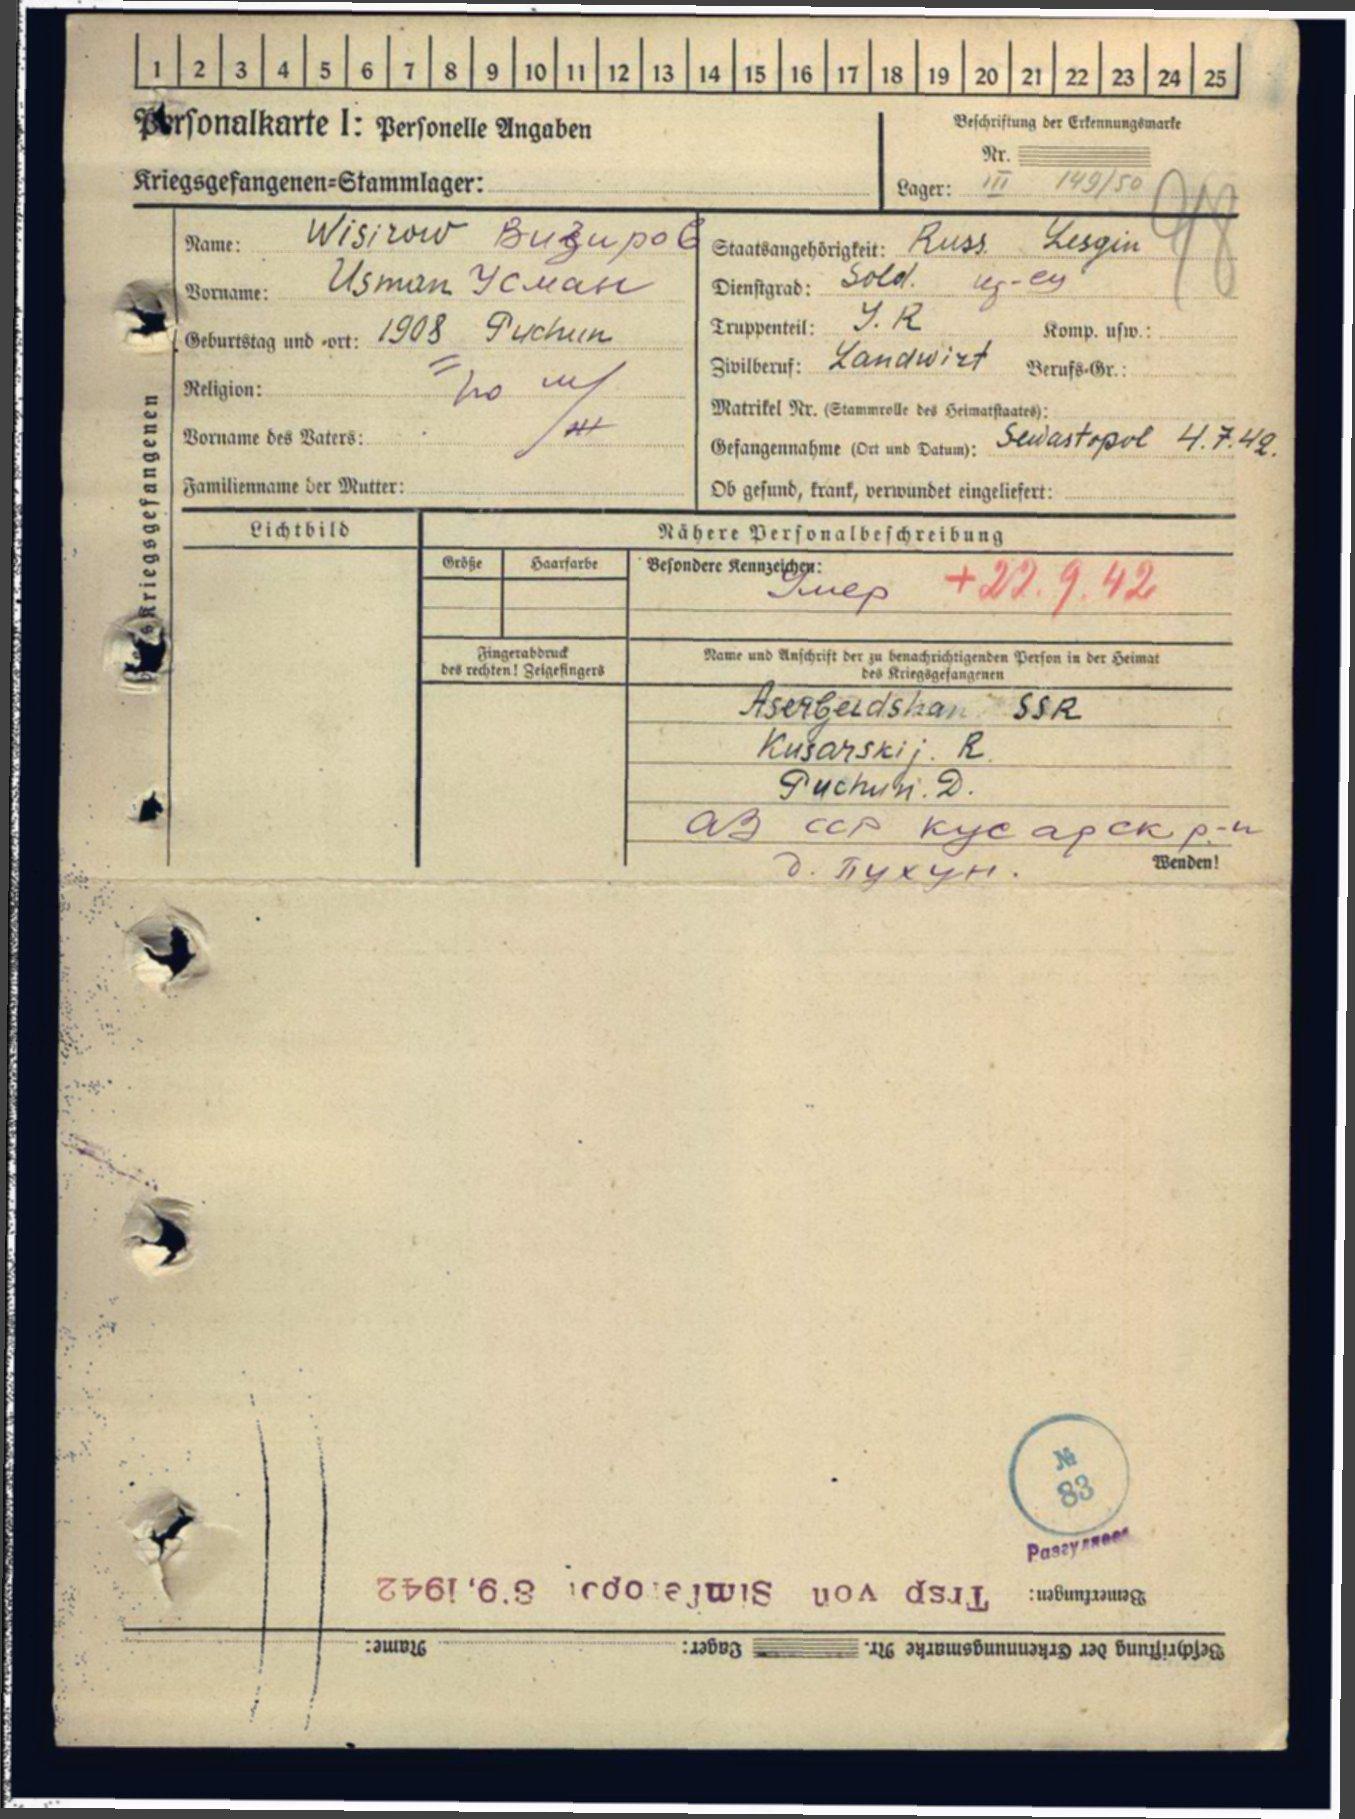 1 2 3 4 5 6 7 8 9 10 11 12 13 14 15 16 17 18 19 20 21 22 23 24 25
Personalkarte I: Personelle Angaben
Kriegsgefangenen-Stammlager:
Beschriftung der Erkennungsmarke
Nr.
Lager: III 149/50
98
des Kriegsgefangenen
Name: Wisirow Визиров
Vorname: Usman Усман
Geburtstag und -ort: 1908 Puchun
Religion:
Vorname des Vaters:
Familienname der Mutter:
Staatsangehörigkeit: Russ. Lesgin
Dienstgrad: Sold.
Truppenteil: I. R Komp. usw.:
Zivilberuf: Landwirt Berufs-Gr.:
Matrikel Nr. (Stammrolle des Heimatstaates):
Gefangennahme (Ort und Datum): Sewastopol 4.7.42.
Ob gesund, krank, verwundet eingeliefert:
Lichtbild
Nähere Personalbeschreibung
Größe Haarfarbe Besondere Kennzeichen:
Умер +22.9.42
Fingerabdruck
des rechten! Zeigefingers
Name und Anschrift der zu benachrichtigenden Person in der Heimat
des Kriegsgefangenen
Aserbeidshan SSR
Kusarskij. R.
Puchun. D.
АЗ ССР Кусарск р-н
д. Пухун.
Wenden!
№
83
Разгуляев
Bemerkungen: Trsp von Simferopol 8.9.1942
Beschriftung der Erkennungsmarke Nr. Lager: Name: